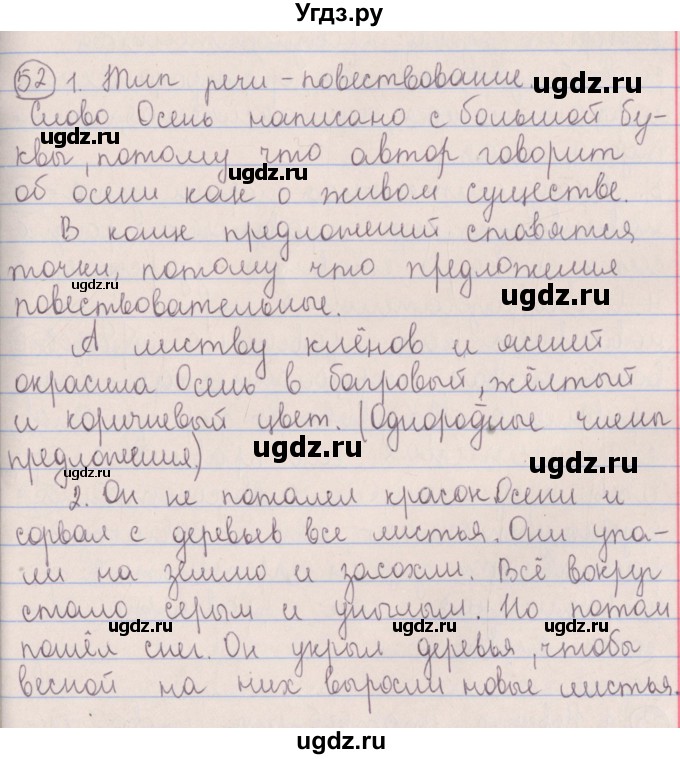 Угдз.ру
52 1. Тип речи - повествование.
ugdz.ru
Слово Осень написано с большой бу-
ugdz.ru
квы, потому что автор говорит
ugdz.ru
об осени как о живом существе.
В конце предложений ставятся
точки, потому что предложения
ugdz.ru
повествовательные.
ugdz.ru
А листву клёнов и ясеней
окрасила Осень в багровый, жёлтый
и коричневый цвет. (Однородные члены
ugdz.ru
предложения)
ugdz.ru
ugdz.ru
2. Он не пожалел красок Осени и
сорвал с деревьев все листья. Они упа-
ли на землю и засохли. Всё вокруг
стало серым и унылым. Но потом
ugdz.ru ugdz.ru ugdz.ru
пошёл снег. Он укрыл деревья, чтобы
весной на них выросли новые листья.
ugdz.ru